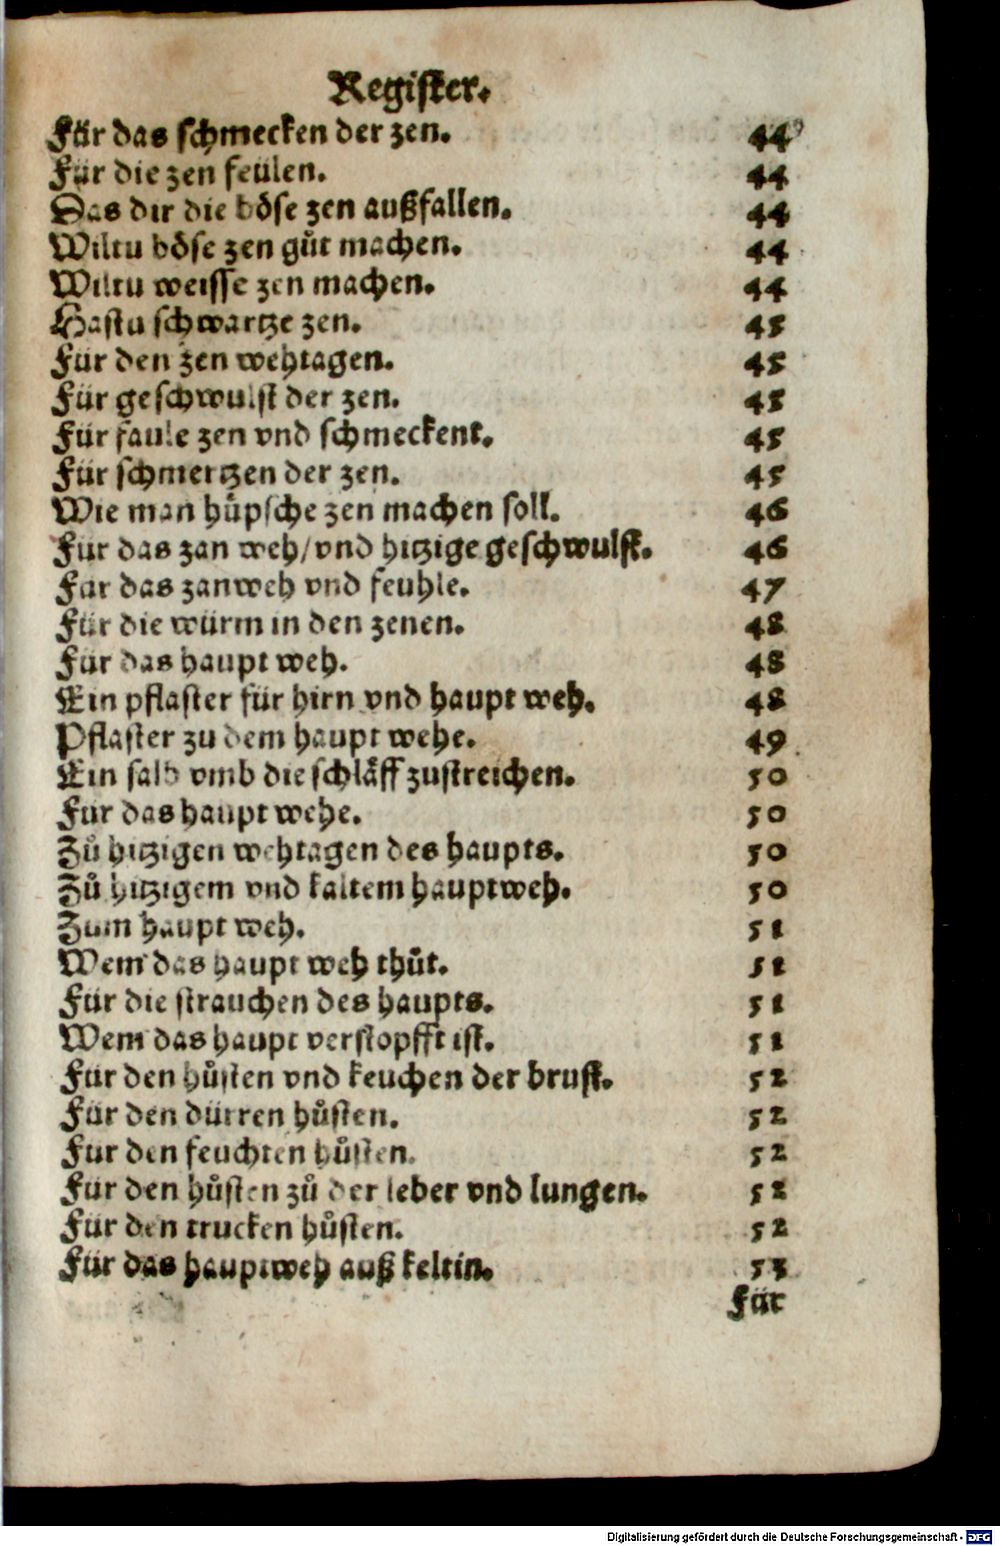 Register.
Für das schmecken der zen. 44
Für die zen feülen. 44
Das dir die böse zen außfallen. 44
Wiltu böse zen gůt machen. 44
Wiltu weisse zen machen. 44
Hastu schwartze zen. 45
Für den zen wehtagen. 45
Für geschwulst der zen. 45
Für faule zen vnd schmeckent. 45
Für schmertzen der zen. 45
Wie man hüpsche zen machen soll. 46
Für das zan weh/ vnd hitzige geschwulst. 46
Für das zanweh vnd feuhle. 47
Für die würm in den zenen. 48
Für das haupt weh. 48
Ein pflaster für hirn vnd haupt weh. 48
Pflaster zu dem haupt wehe. 49
Ein salb vmb die schläff zustreichen. 50
Für das haupt wehe. 50
Zů hitzigen wehtagen des haupts. 50
Zů hitzigem vnd kaltem hauptweh. 50
Zum haupt weh. 51
Wem das haupt weh thůt. 51
Für die strauchen des haupts. 51
Wem das haupt verstopfft ist. 51
Für den hůsten vnd keuchen der brust. 52
Für den dürren hůsten. 52
Für den feuchten hůsten. 52
Für den hůsten zů der leber vnd lungen. 52
Für den trucken hůsten. 52
Für das hauptweh auß keltin. 53
Für
Digitalisierung gefördert durch die Deutsche Forschungsgemeinschaft - DFG